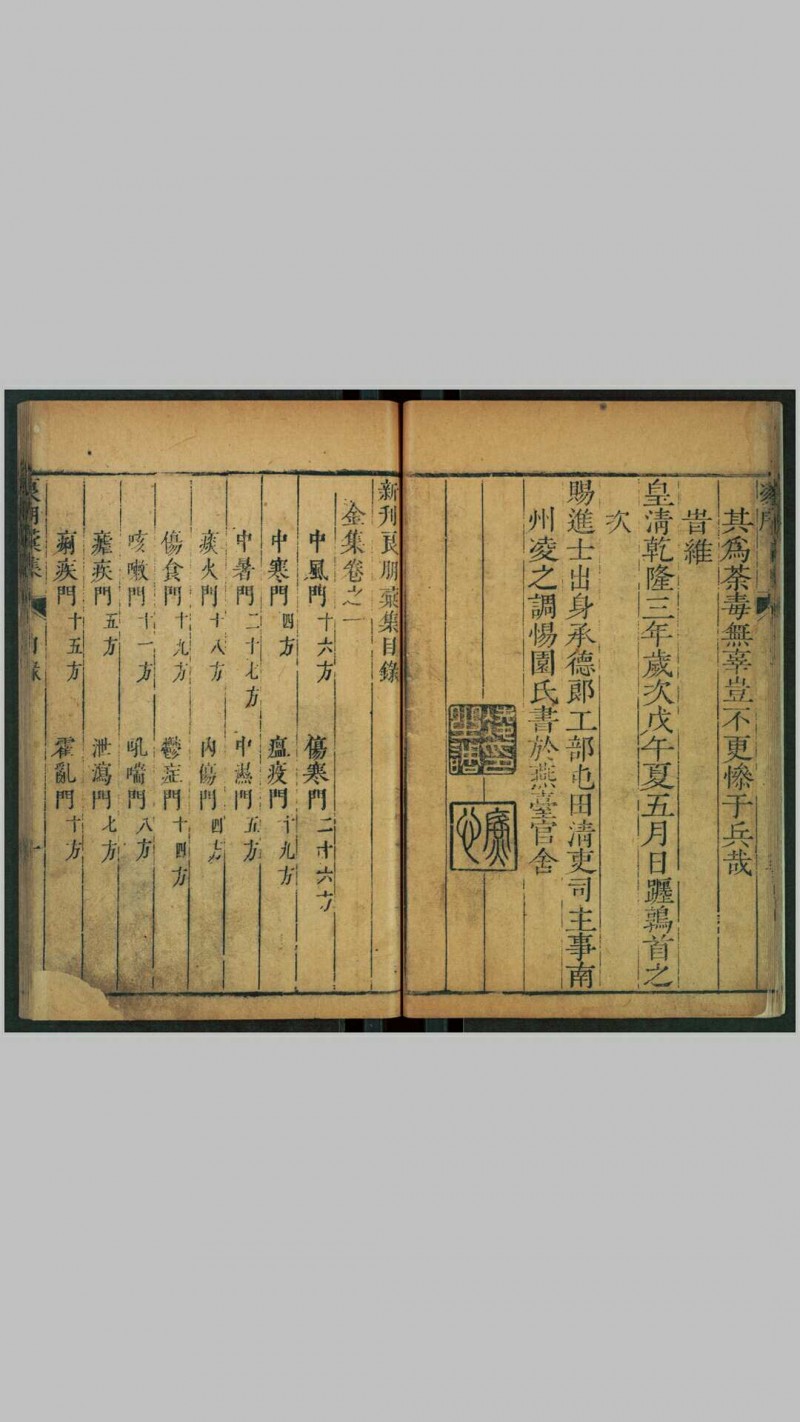 其爲荼毒無辜豈不更慘于兵哉
旹維
皇清乾隆三年歲次戊午夏五月日躔鶉首之
次
賜進士出身承德郎工部屯田清吏司主事南
州凌之調惕園氏書於燕臺官舍
新刊良朋彙集目錄
金集卷之一
中風門 十六方 傷寒門 二十六方
中寒門 四方 瘟疫門 十九方
中暑門 二十七方 中濕門 五方
痰火門 十八方 內傷門 四方
傷食門 十九方 鬱症門 十四方
咳嗽門 十一方 吼喘門 八方
瘧疾門 五方 泄瀉門 七方
痢疾門 十五方 霍亂門 十方
良朋彙集 目錄 一